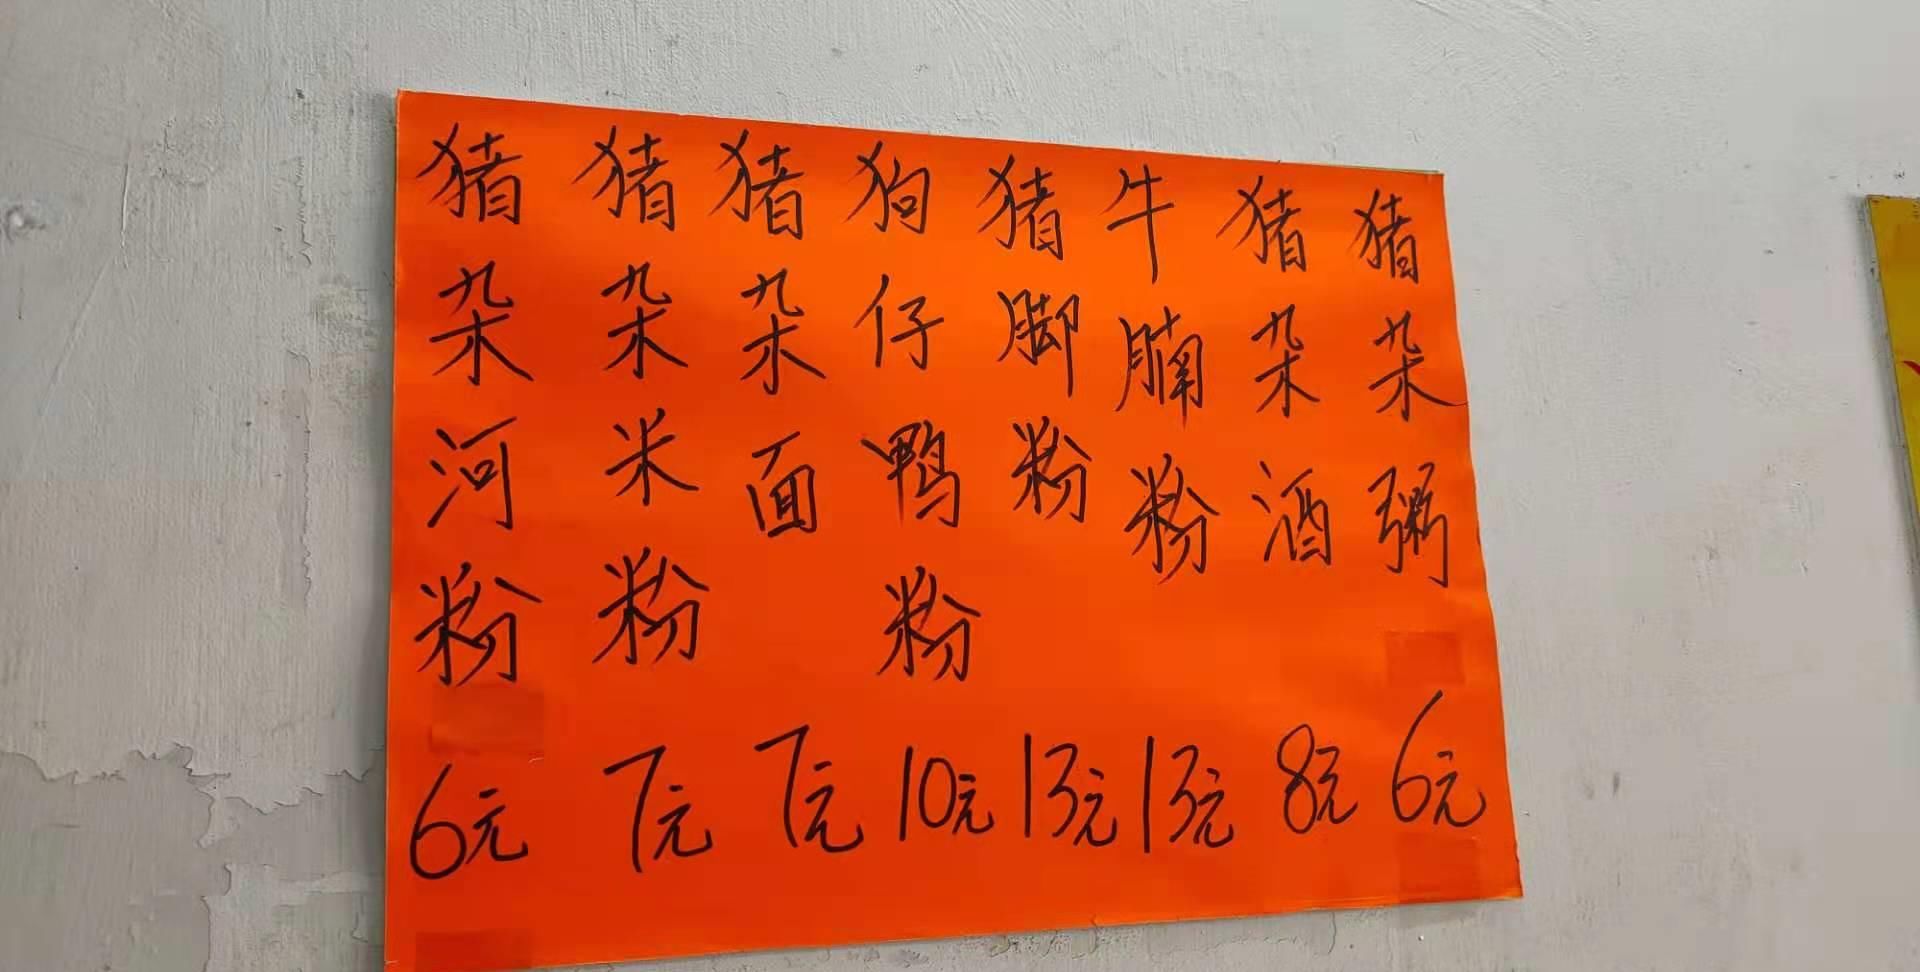 猪杂河粉 6元
猪杂米粉 7元
猪杂面 7元
狗仔鸭粉 10元
猪脚粉 13元
牛腩粉 13元
猪杂酒 8元
猪杂粥 6元